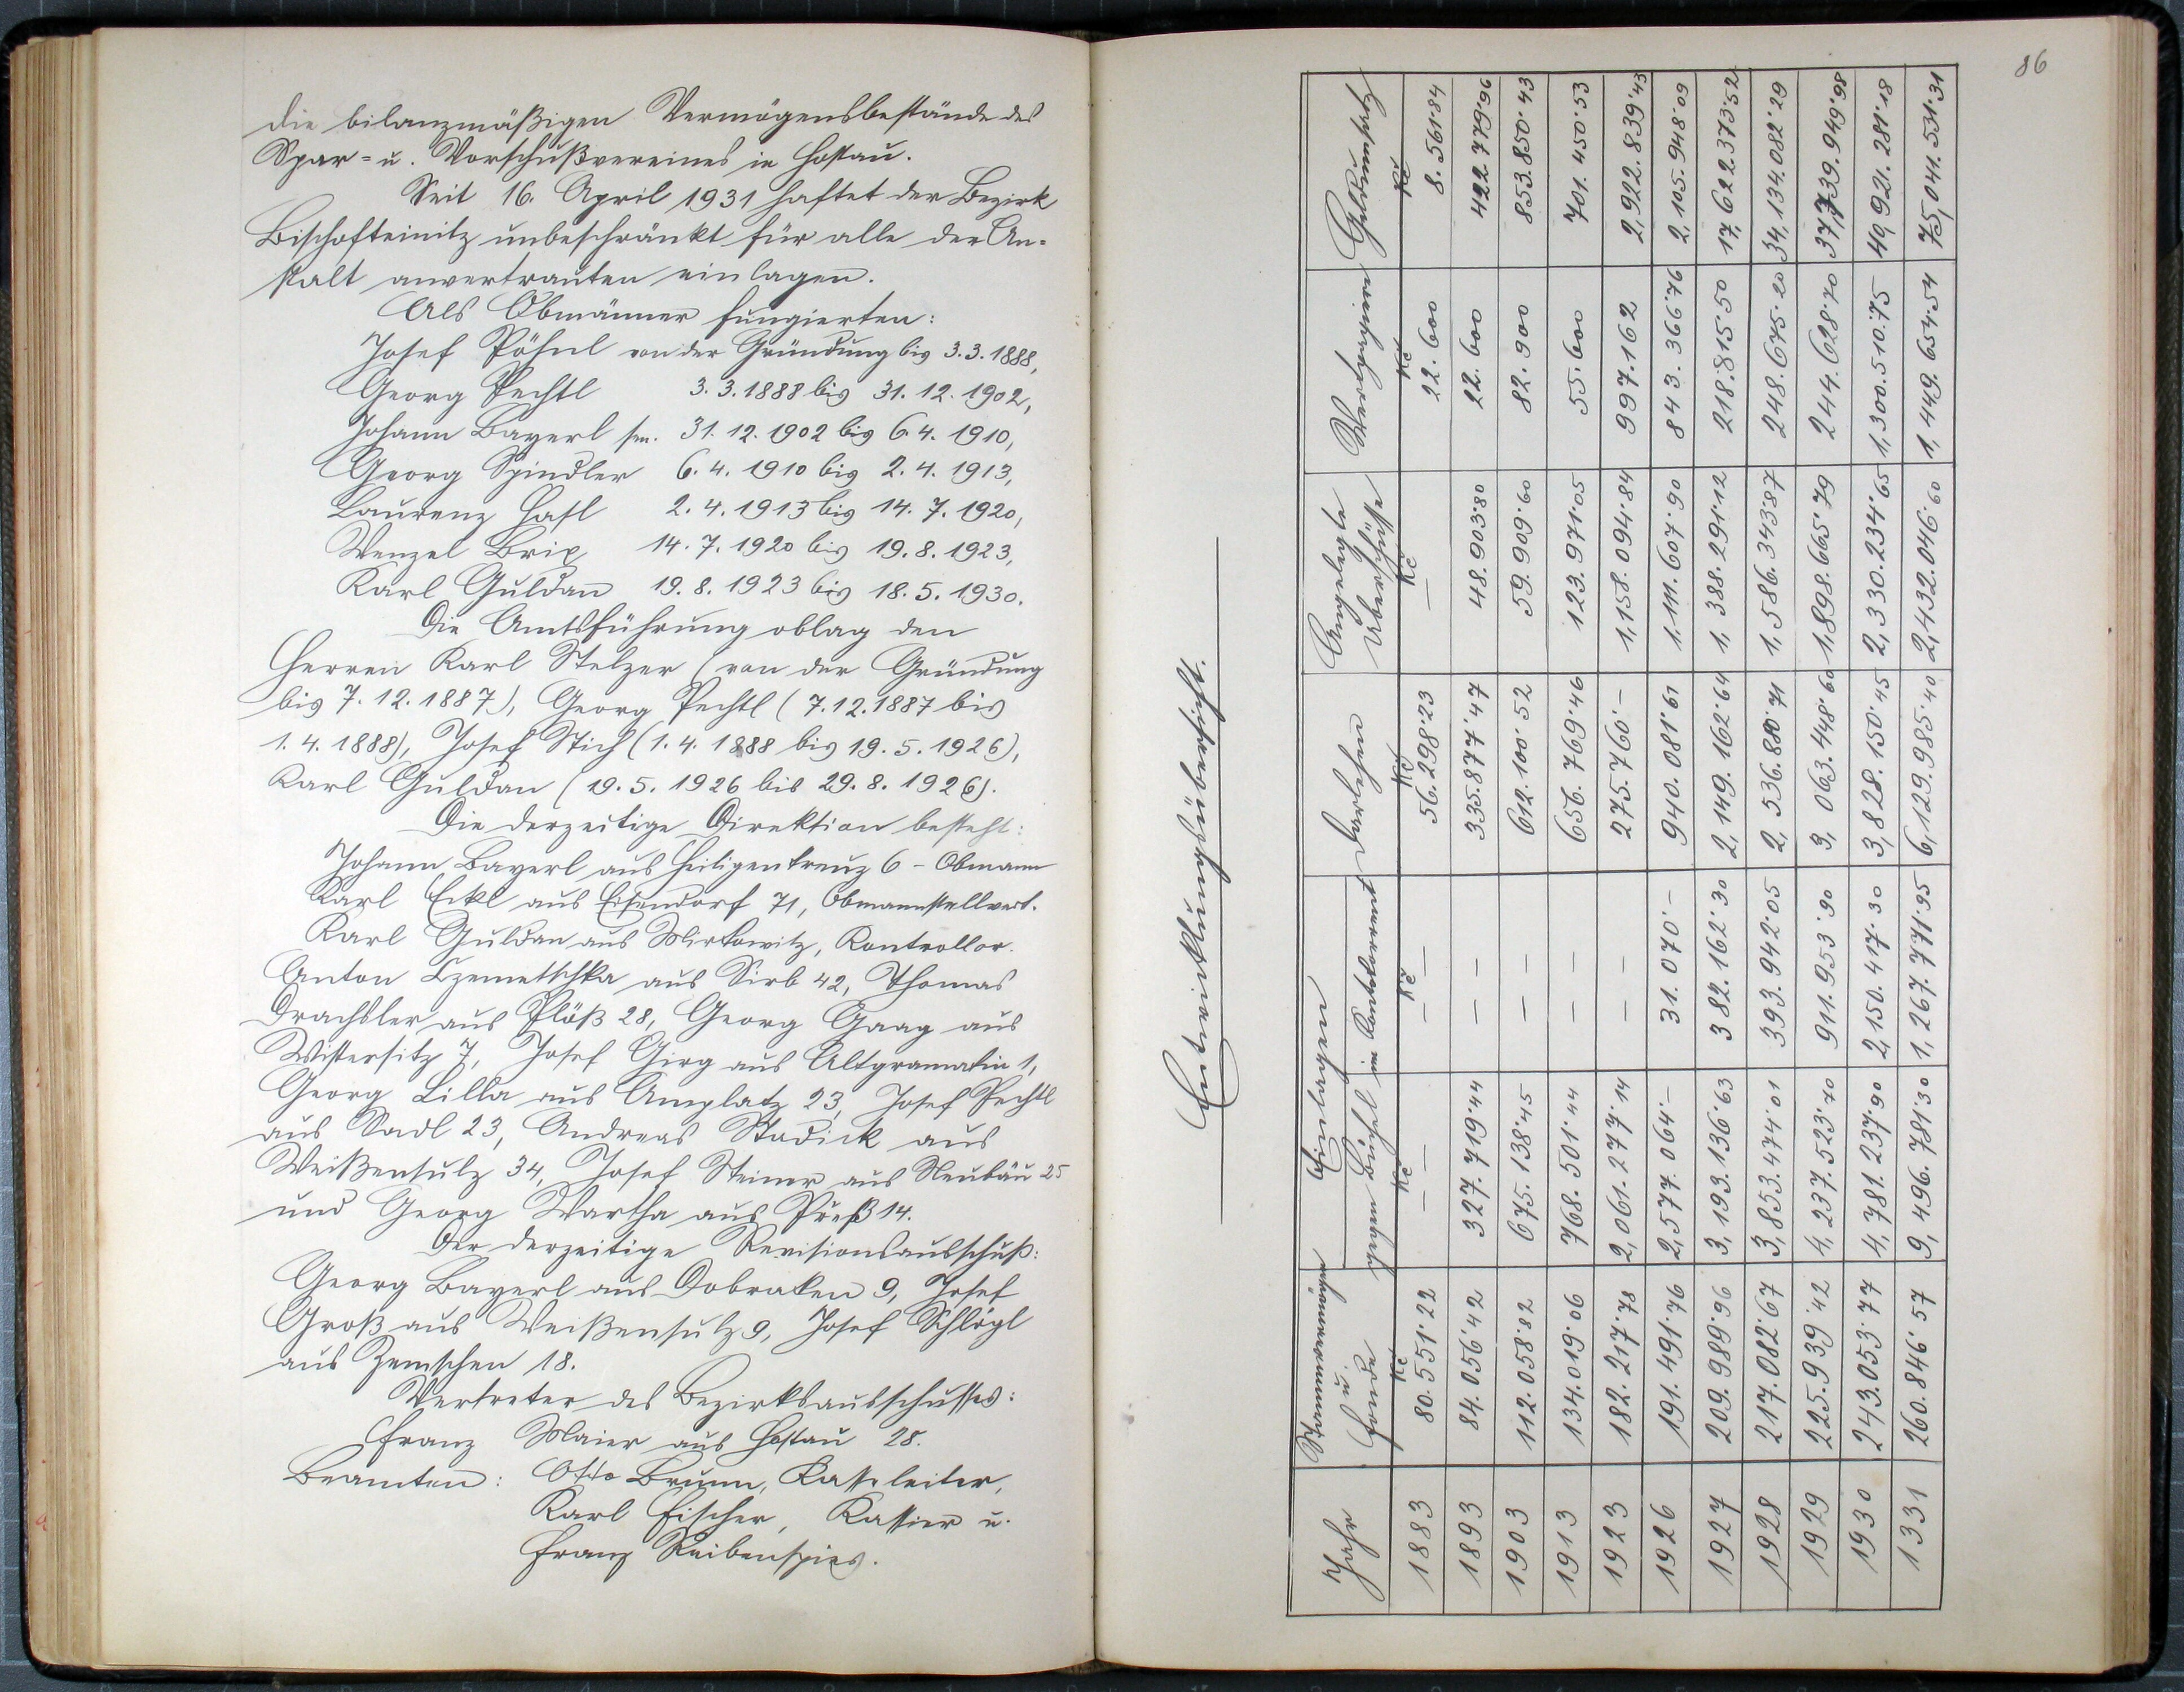 die bilanzmäßigen Vermögensbestände des
Spar= u. Vorschußvereines in Hostau.
Seit 16. April 1931 haftet der Bezirk
Bischofteinitz unbeschränkt für alle der An-
stalt anvertrauten einlagen.
Als Obmänner fungierten:
Josef Pöhnl von der Gründung bis 3.3.1888,
Georg Pechtl 3.3.1888 bis 31.12.1902,
Johann Bayerl sen. 31.12.1902 bis 6.4.1910,
Georg Spindler 6.4.1910 bis 2.4.1913,
Laurenz Hasl 2.4.1913 bis 14.7.1920,
Wenzel Brix 14.7.1920 bis 19.8.1923,
Karl Guldan 19.8.1923 bis 18.5.1930.
Die Amtsführung oblag den
Herren Karl Stelzer (von der Gründung
bis 7.12.1887), Georg Pechtl (7.12.1887 bis
1.4.1888), Josef Stich (1.4.1888 bis 19.5.1926),
Karl Guldan (19.5.1926 bis 29.8.1926).
Die derzeitige Direktion besteht:
Johann Bayerl aus Heiligenkreuz 6 - Obmann
Karl Eckl aus Eisendorf 71, Obmannstellvert.
Karl Guldan aus Mirkowitz, Kontrollor.
Anton Czemetschka aus Sirb 42, Thomas
Drachsler aus Plöß 28, Georg Gaag aus
Wistersitz 7, Josef Girg aus Altgramatin 1,
Georg Lilla aus Amplatz 23, Josef Pechtl
aus Sadl 23, Andreas Stadick aus
Weißensulz 34, Josef Steiner aus Neubäu 25
und Georg Wartha aus Preß 14.
Der derzeitige Revisionsausschuß:
Georg Bayerl aus Dobraken 9, Josef
Groß aus Weißensulz 9, Josef Schlögl
aus Zemschen 18.
Vertreter des Bezirksausschusses:
Franz Maier aus Hostau 28.
Beamten: Otto Brunn, Kasseleiter,
Karl Fischer, Kassier u.
Franz Reibenspies.
86
Entwicklungsübersicht.
Jahr Stammvermögen u. Fonde Kč Einlagen gegen Büchel Kč im Kontokorrent Kč Darlehen Kč Angelegte Überschüsse Kč Wertpapiere Kč Geldumsatz Kč
1883 80.551·22 — — — — 56.298·23 — 22.600 8.561·84
1893 84.056·42 327.719·44 — — 335.877·47 48.903·80 22.600 422.779·96
1903 112.058·82 675.138·45 — — 612.100·52 59.909·60 82.900 853.850·43
1913 134.019·06 768.501·44 — — 656.769·46 123.971·05 55.600 701.450·53
1923 182.217·78 2,061.277·14 — — 275.760·— 1,158.094·84 997.162 2,922.839·43
1926 191.491·76 2,577.064·— 31.070·— 940.081·61 1,111.607·90 843.366·76 2,105.948·09
1927 209.989·96 3,193.136·63 382.162·30 2,149.162·64 1,388.291·12 218.815·50 17,622.373·52
1928 217.082·67 3,853.474·01 393.942·05 2,536.880·71 1,586.343·87 248.675·20 34,134.082·29
1929 225.939·42 4,237.523·70 911.953·90 3,063.448·60 1,898.665·79 244.628·70 37,739.949·98
1930 243.053·77 4,781.237·90 2,150.417·30 3,828.150·45 2,330.234·65 1,300.510·75 40,921.281·18
1331 260.846·57 9,496.781·30 1,267.771·95 6,129.985·40 2,432.046·60 1,449.654·54 75,041.531·31